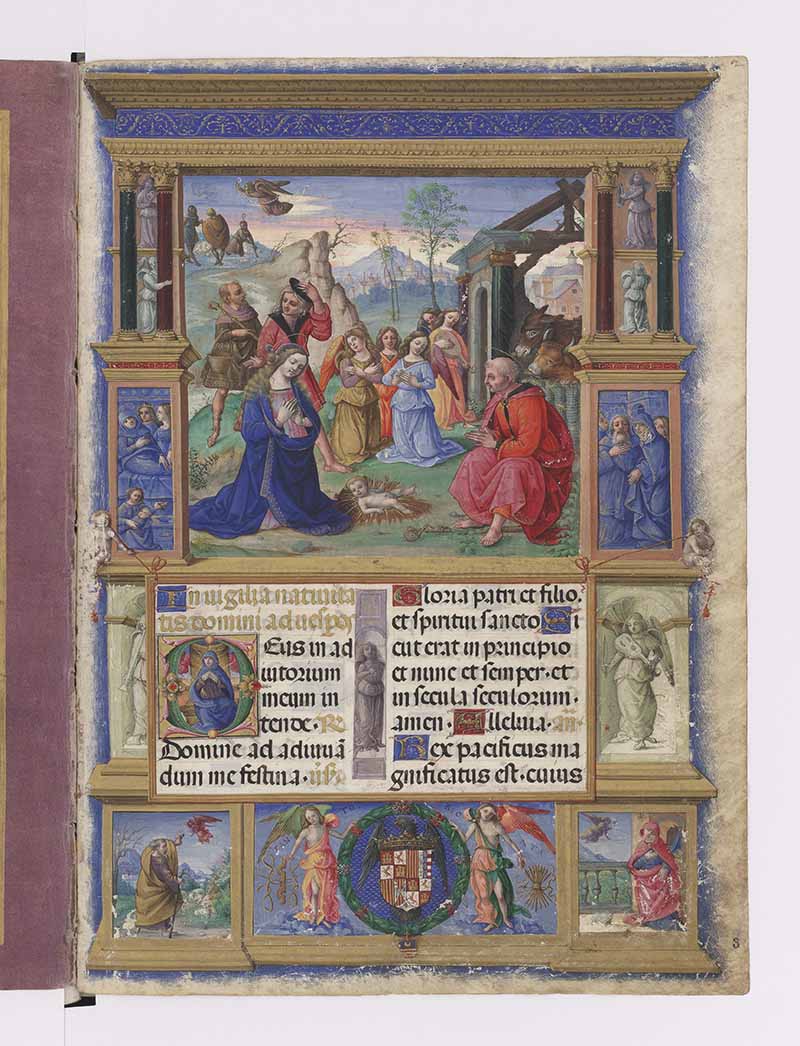 In uigilia natiuita
tis domini ad uesperas
Eus in ad
iutorium
meum in
tende. R
Domine ad adiuuā
dum me festina. V.
Gloria patri et filio.
et spiritui sancto Si
cut erat in principio
et nunc et semper. et
in secula seculorum.
amen. Alleluia. an.
Rex pacificus ma
gnificatus est. cuius
3